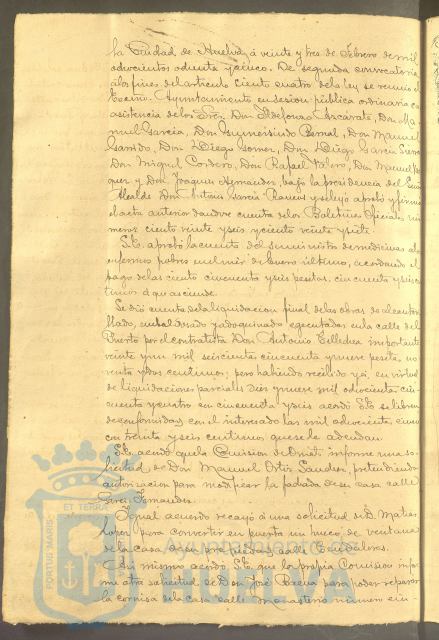 la Ciudad de Huelva á veinte y tres de Febrero de mil
ochocientos ochenta y cinco. De segunda convocatoria
á los fines del artículo ciento cuatro de la ley se reunió el
Excmo. Ayuntamiento en sesion pública ordinaria con
asistencia de los Sres. Don Ildefonso Azcárate, Don Ma
nuel Garcia, Don Gumersindo Bernal, Don Manuel
Garrido, Don Diego Gomez, Don Diego Garcia
Don Miguel Cordero, Don Rafael Valero, Don Manuel
y Don Joaquin Hernandez, bajo la presidencia del
Alcalde Don Antonio Garcia Ramos y se leyó aprobó y firmó
el acta anterior dandose cuenta de los Boletines Oficiales nú
meros ciento veinte y seis y ciento veinte y siete.
S.E. aprobó la cuenta del suministro de medicinas a los
enfermos pobres en el mes de Enero último, acordando el
pago de las ciento cincuenta y seis pesetas, cincuenta y seis cén
timos á que asciende.
Se dió cuenta de la liquidacion final de las obras de alcantari
llado, embaldosado y adoquinado ejecutadas en la calle del
Puerto por el contratista Don Antonio Tellechea importante
veinte y un mil seiscientas cincuenta y nueve pesetas, no
venta y dos centimos; pero habiendo recibido ya, en virtud
de liquidaciones parciales diez y nueve mil ochocientas cin
cuenta y cuatro con cincuenta y seis acordó S.E. se libren
de conformidad con el interesado las mil ochocientas cinco
con treinta y seis centimos que se le adeudan.
S.E. acordó que la Comision de Ornato informe una so
licitud de Don Manuel Ortiz Sanchez, pretendiendo
autorizacion para modificar la fachada de su casa calle
Garci Fernandez.
Igual acuerdo recayó á una solicitud de D. Matias
Lopez para convertir en puerta un hueco de ventana
de la casa de su propiedad, calle
Asi mismo acordó S.E. que la propia Comision infor
me otra solicitud de Don José Brena para poder reparar
la cornisa de la casa calle Monasterio número cin
PORTUS MARIS ET TERRAE
Ayuntamiento de
HUELVA